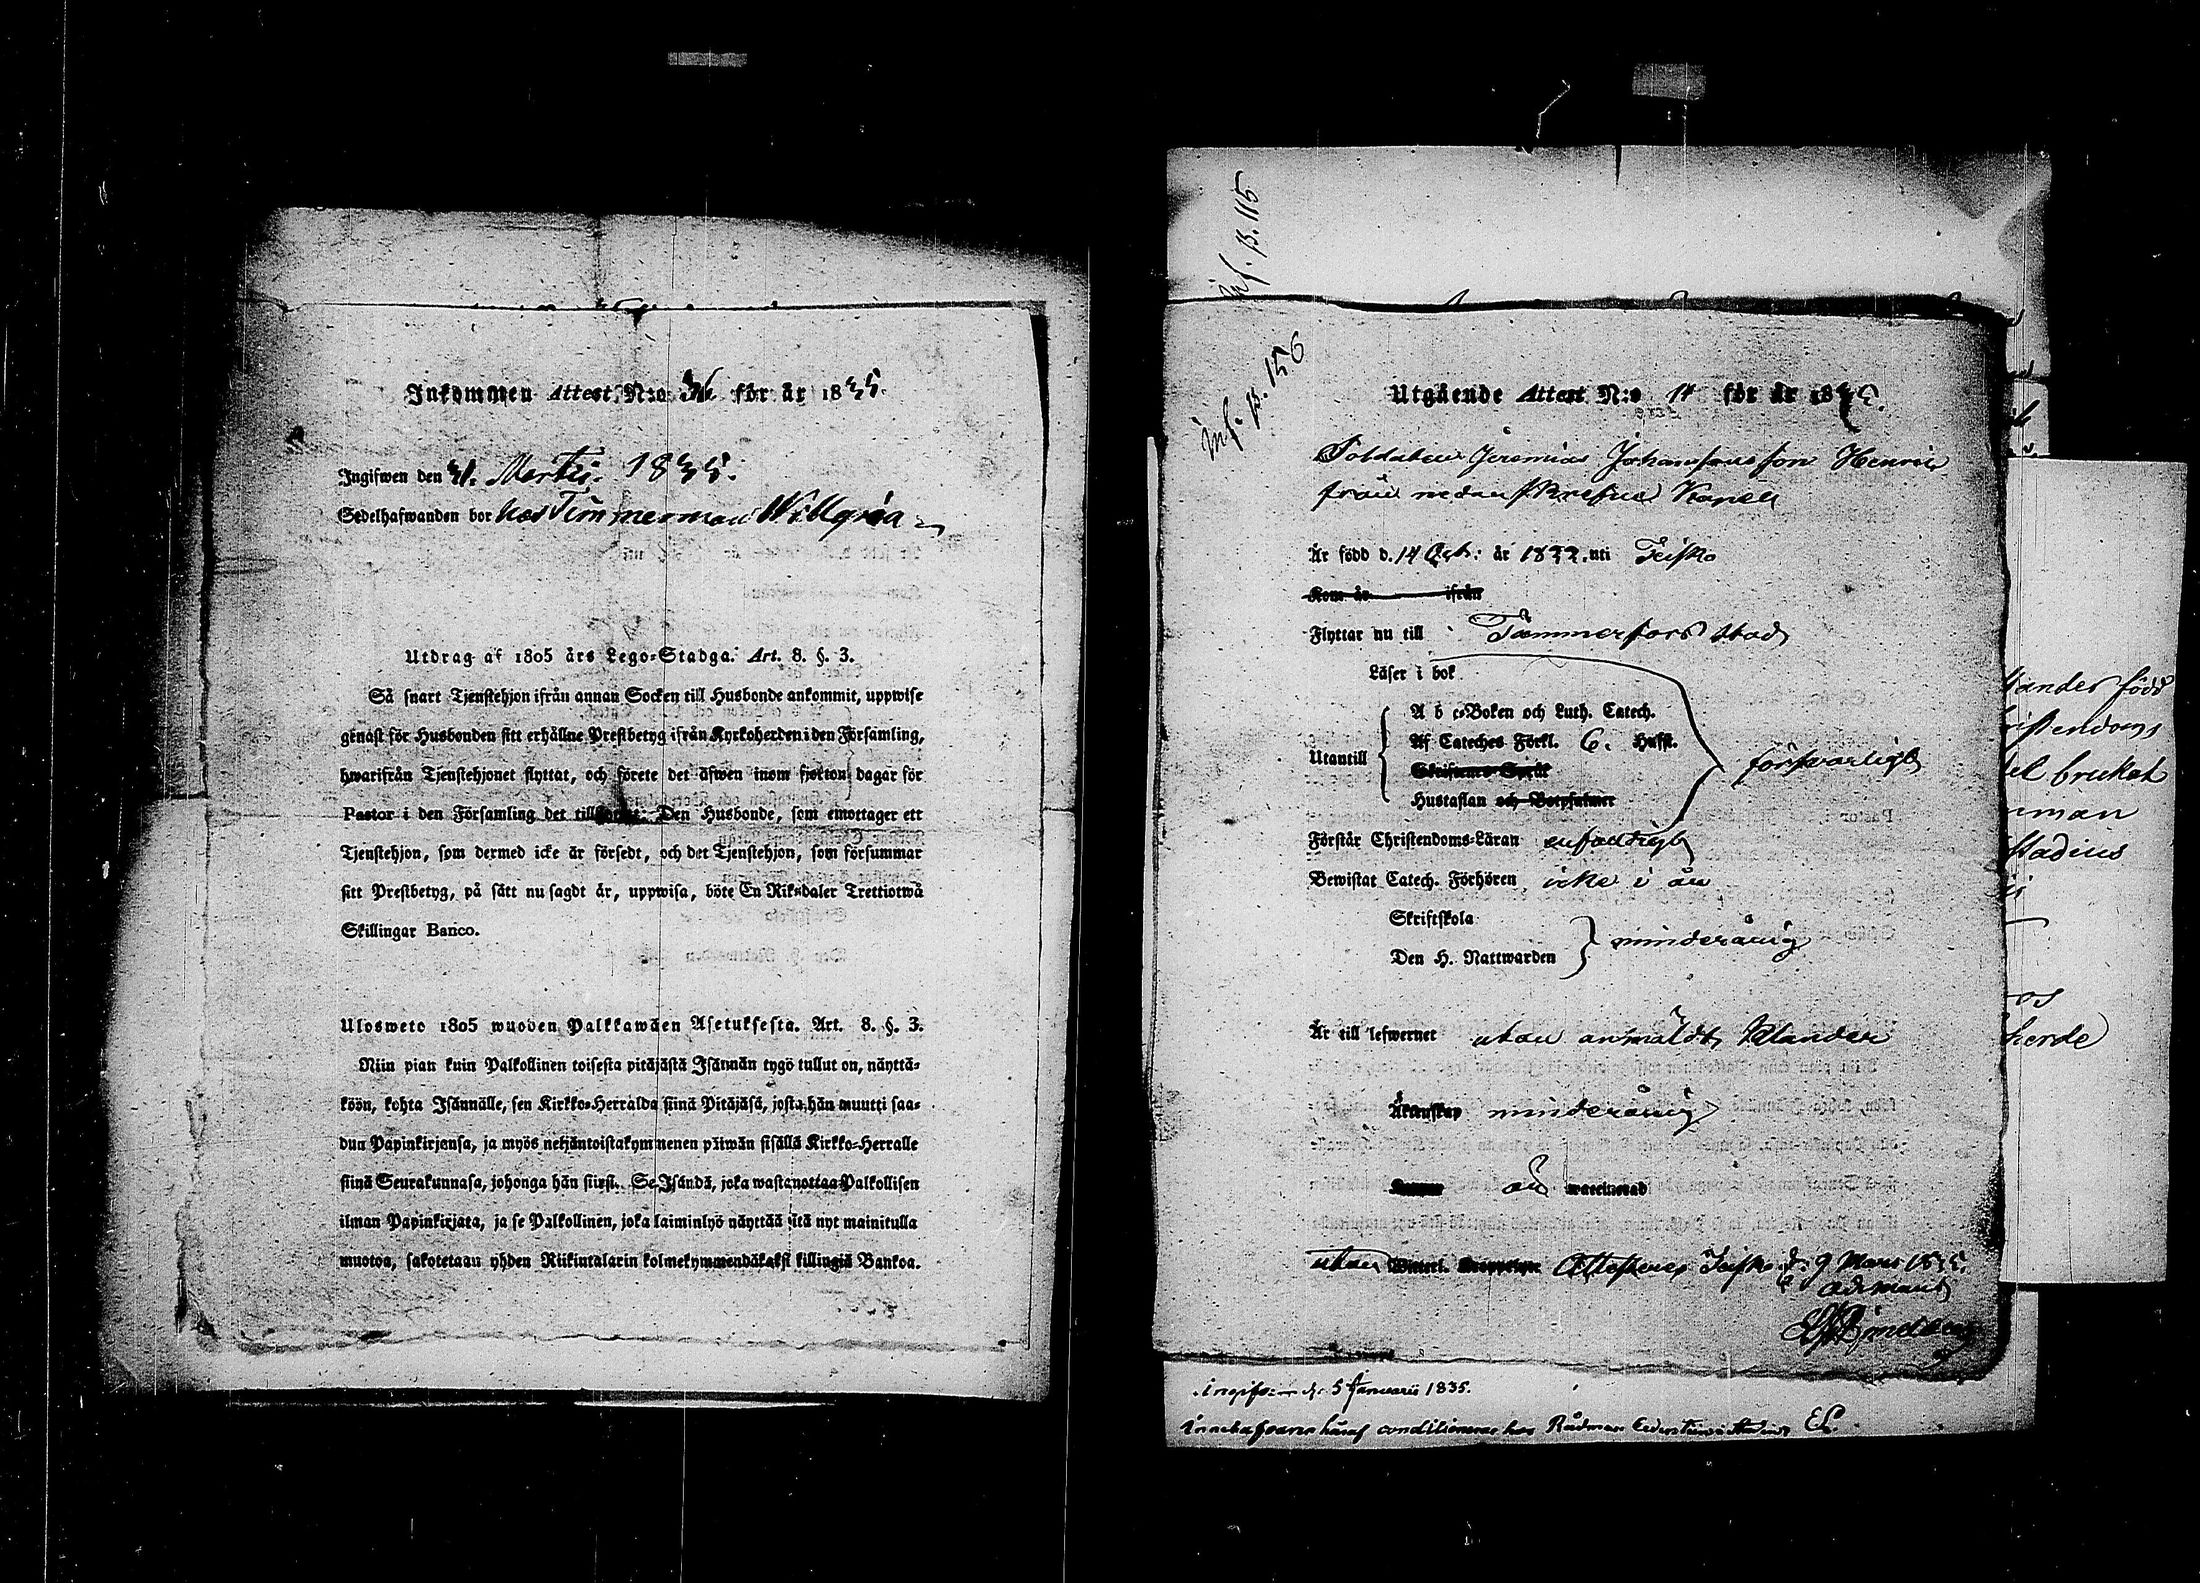 Inkommen Attest N:o 36 för år 1835.
Ingifwen den 31. Martii. 1835.
Sedelhafwanden bor hos Timmerman Willgrén
Utdrag af 1805 års Lego-Stadga. Art. 8. §. 3.
Så snart Tjenstehjon ifrån annan Socken till Husbonde ankommit, uppwise
genast för Husbonden sitt erhållne Prestbetyg ifrån Kyrkoherden i den Församling,
hwarifrån Tjenstehjonet flyttat, och förete det äfwen inom fjorton dagar för
Pastor i den Församling det tillhörer. Den Husbonde, som emottager ett
Tjenstehjon, som dermed icke är försedt, och det Tjenstehjon, som försummar
sitt Prestbetyg, på sätt nu sagdt är, uppwisa, böte En Riksdaler Trettiotwå
Skillingar Banco.
Ulosweto 1805 wuoden Palkkawäen Asetuksesta. Art. 8. §. 3.
Niin pian kuin Palkollinen toisesta pitäjästä Isännän tygö tullut on, näyttä-
köön, kohta Isännälle, sen Kirkko-Herralda siinä Pitäjäsä, josta hän muutti saa-
dun Papinkirjansa, ja myös neljäntoistakymmenen päiwän sisällä Kirkko-Herralle
siinä Seurakunnasa, johonga hän siirsi. Se Isändä, joka wastanottaa Palkollisen
ilman Papinkirjata, ja se Palkollinen, joka laiminlyö näyttää sitä nyt mainitulla
muotoa, sakotetaan yhden Riikintalarin kolmekymmendäkaksi killingiä Bankoa.
inf. p. 115
inf. p. 156
Utgående Attest N:o 14 för år 1835.
Soldaten Jeremias Johanssons son Henric
från
Är född d. 14 Oct: år 1822. uti Teisko
Kom år ifrån
Flyttar nu till Tammerfors stad
Läser i bok
A b c-Boken och Luth. Catech.
Utantill Af Cateches Förkl. 6. Hufst. försvarligt
Skriftenes Språk
Hustaflan och Botpsalmer
Förstår Christendoms-Läran enfaldigt
Bewistat Catech. Förhören icke i år
Skriftskola
minderårig
Den H. Nattwarden
Är till lefwernet utan anmäldt klander
Äktenskap minderårig
är vaccinerad
utan Attesteras Teisko d. 9 Mars 1835.
ex adjmand
kander född
istendoms
el brukat
nman
stadius
herde
ingifven d. 5 Januarii 1835.
Innehafvaren häraf conditionerar hos Rådman